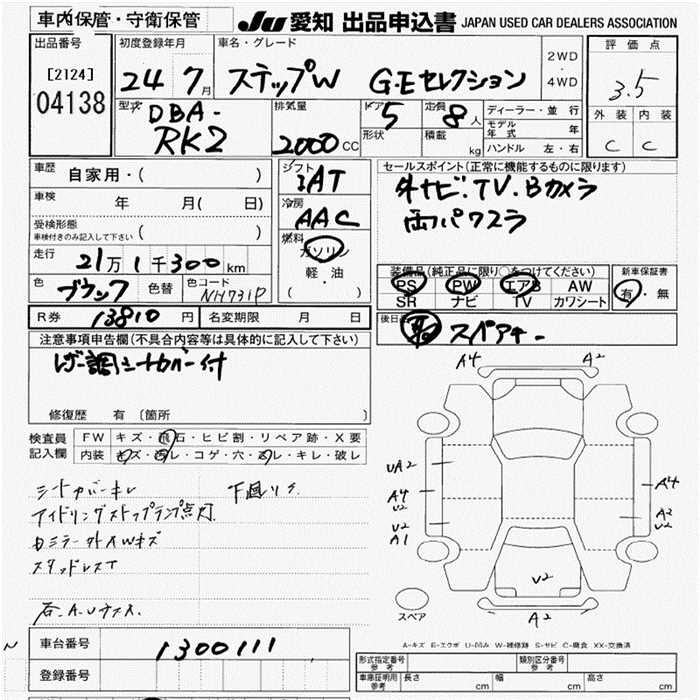 車内保管・守衛保管
JU 愛知 出品申込書 JAPAN USED CAR DEALERS ASSOCIATION
出品番号
[2124]
04138
初度登録年月
24 7月
車名・グレード
ステップW G・Eセレクション
2WD
・
4WD
評価点
3.5
外装 内装
C C
型式
DBA-
RK2
排気量
2000 CC
ドア 5
形状
定員 8 人
積載 kg
ディーラー・並行
モデル年式 年
ハンドル 左・右
車歴 自家用・( )
車検 年 月( 日)
受検形態
車検付きのみ記入して下さい ( )
走行 21万1千300km
色 ブラック 色替 色コード NH731P
シフト
IAT
冷房
AAC
燃料
ガソリン
軽・油
( ・ )
セールスポイント(正常に機能するものに限ります)
外ナビ.TV.Bカメラ
両パワスラ
装備品(純正品に限り○をつけてください)
PS PW エアB AW
SR ナビ TV カワシート
新車保証書
有・無
R券 13810 円 名変期限 月 日
後日品
スペアキー
注意事項申告欄(不具合内容等は具体的に記入して下さい)
レザー調シートカバー付
修復歴 有 〔箇所
検査員
記入欄
FW キズ・飛石・ヒビ割・リペア跡・X要
内装 キズ・汚レ・コゲ・穴・スレ・キレ・破レ
シートカバーキレ 下廻りサ
アイドリングストップランプ点灯
スタッドレスT
A4 A2
UA2
A4
U2
U2
A1
A4
A2
U2
U2
A2
スペア
A-キズ E-エクボ U-凹み W-補修跡 S-サビ C-腐食 XX-交換済
車台番号 1300111
登録番号
形式指定番号
参考
類別区分番号
参考
車庫証明用
参考
長さ cm 幅 cm 高さ cm